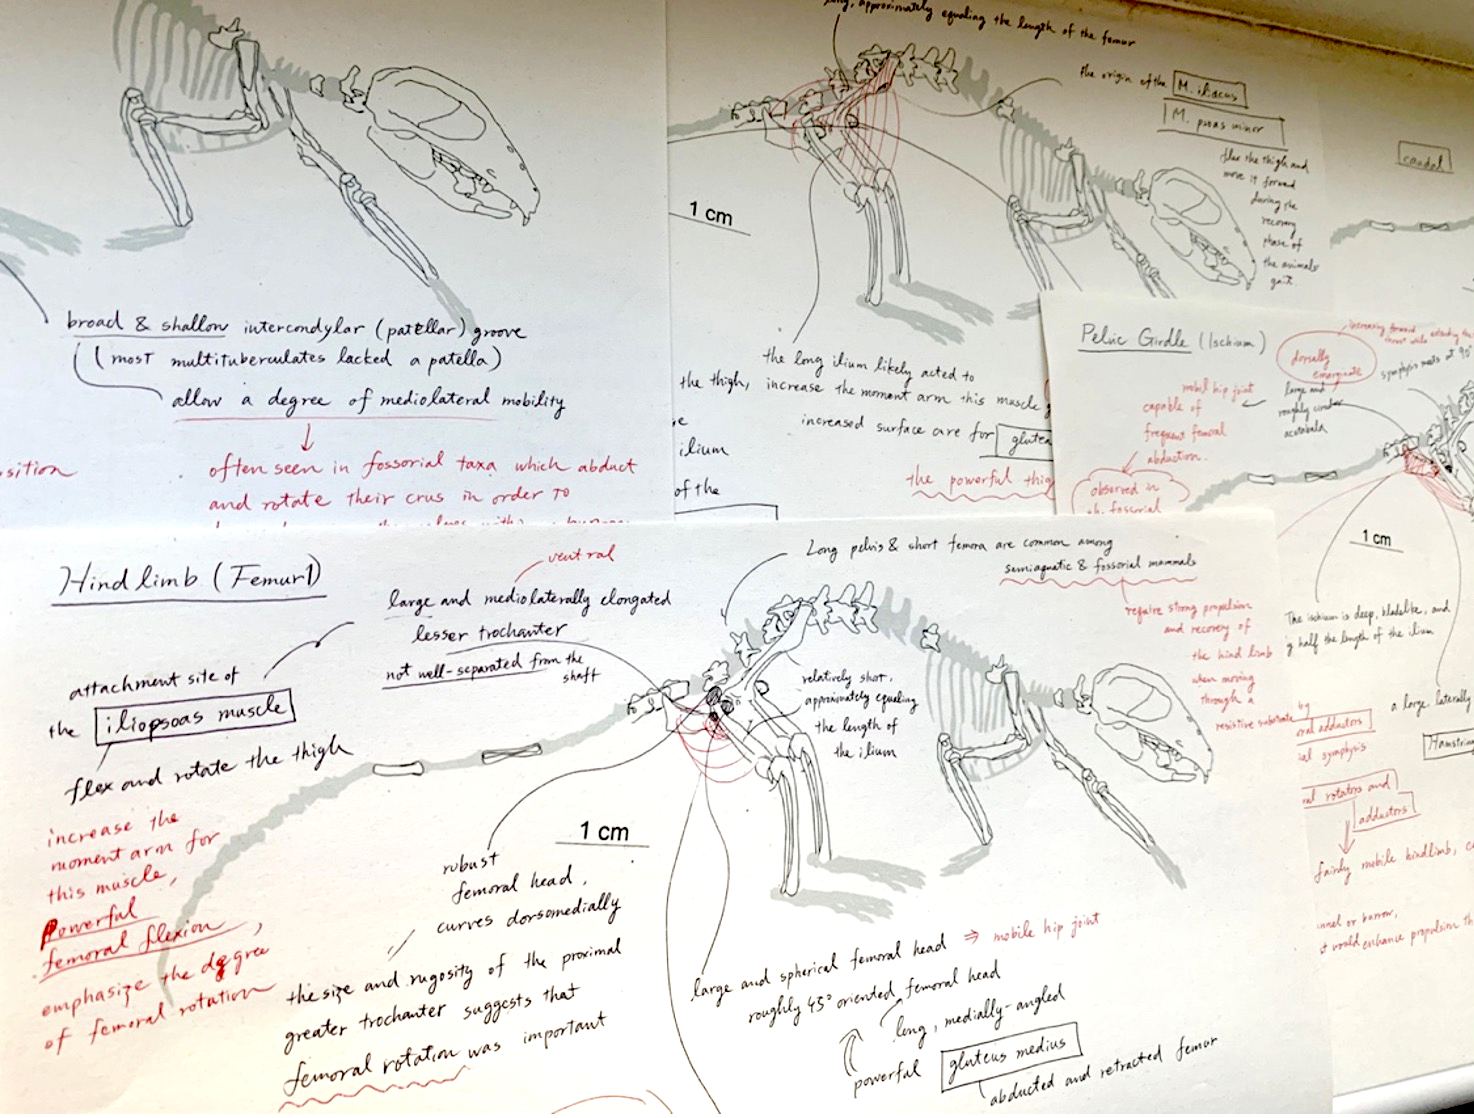 broad & shallow intercondylar (patellar) groove
(most multituberculates lacked a patella)
allow a degree of mediolateral mobility
sition
often seen in fossorial taxa which abduct
and rotate their crus in order to
long, approximately equaling the length of the femur
the origin of the M. iliacus
M. psoas minor
flex the thigh and
move it forward
during the
recovery
phase of
the animals
gait
1 cm
the long ilium likely acted to
the thigh, increase the moment arm this muscle
increased surface are for glutea
ilium
of the
the powerful thig
caudal
Pelvic Girdle (Ischium)
increasing forward
thrust while extending the
dorsally
emarginate
symphysis meets at 90°
mobil hip joint
capable of
frequent femoral
abduction.
large and
roughly circular
acetabula
observed in
fossorial
1 cm
The ischium is deep, bladelike, and
half the length of the ilium
a large, laterally
Hamstrin
by
oral adductors
ial symphysis
ral rotators and
adductors
fairly mobile hindlimb,
unnel or burrow,
t would enhance propulsion th
Hind limb (Femur1)
ventral
large and mediolaterally elongated
lesser trochanter
not well-separated from the
shaft
attachment site of
the iliopsoas muscle
flex and rotate the thigh
increase the
moment arm for
this muscle,
powerful
femoral flexion,
emphasize the degree
of femoral rotation
Long pelvis & short femora are common among
semiaquatic & fossorial mammals
require strong propulsion
and recovery of
the hind limb
when moving
through a
resistive substrate
relatively shot,
approximately equaling
the length of
the ilium
1 cm
robust
femoral head,
curves dorsomedially
the size and rugosity of the proximal
greater trochanter suggests that
femoral rotation was important
large and spherical femoral head ⇒ mobile hip joint
roughly 45° oriented femoral head
long, medially-angled
powerful gluteus medius
abducted and retracted femur